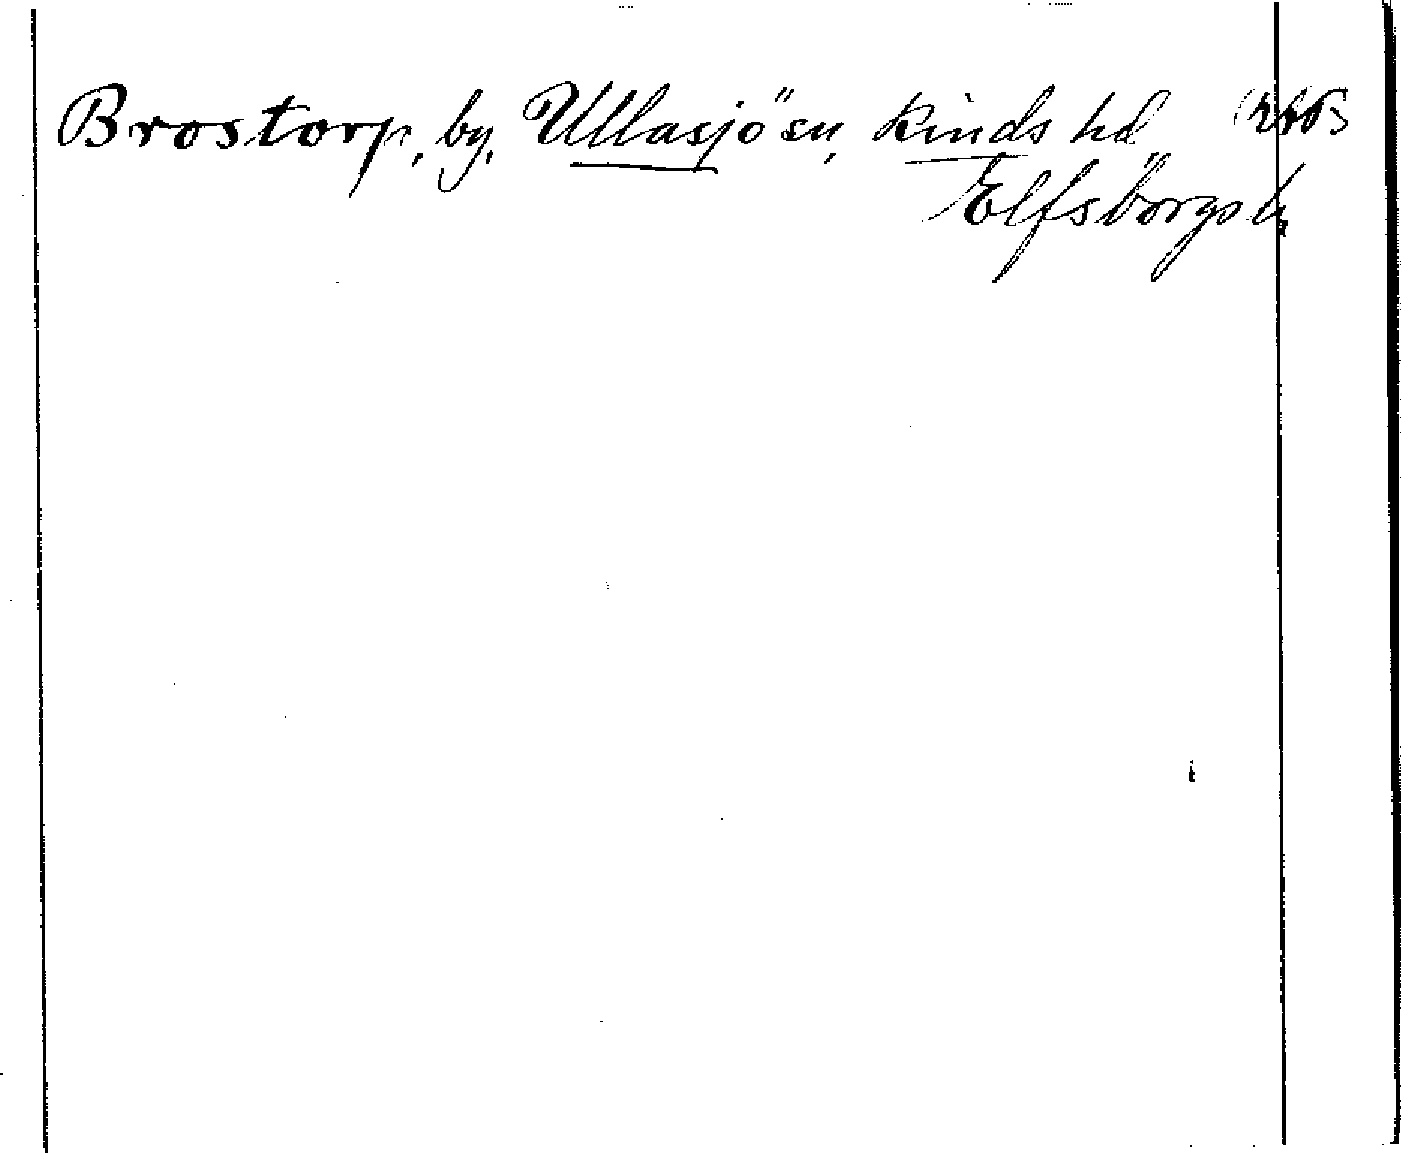 Brostorp, by, Ullasjö sn, Kinds hd
Elfsborgs l.